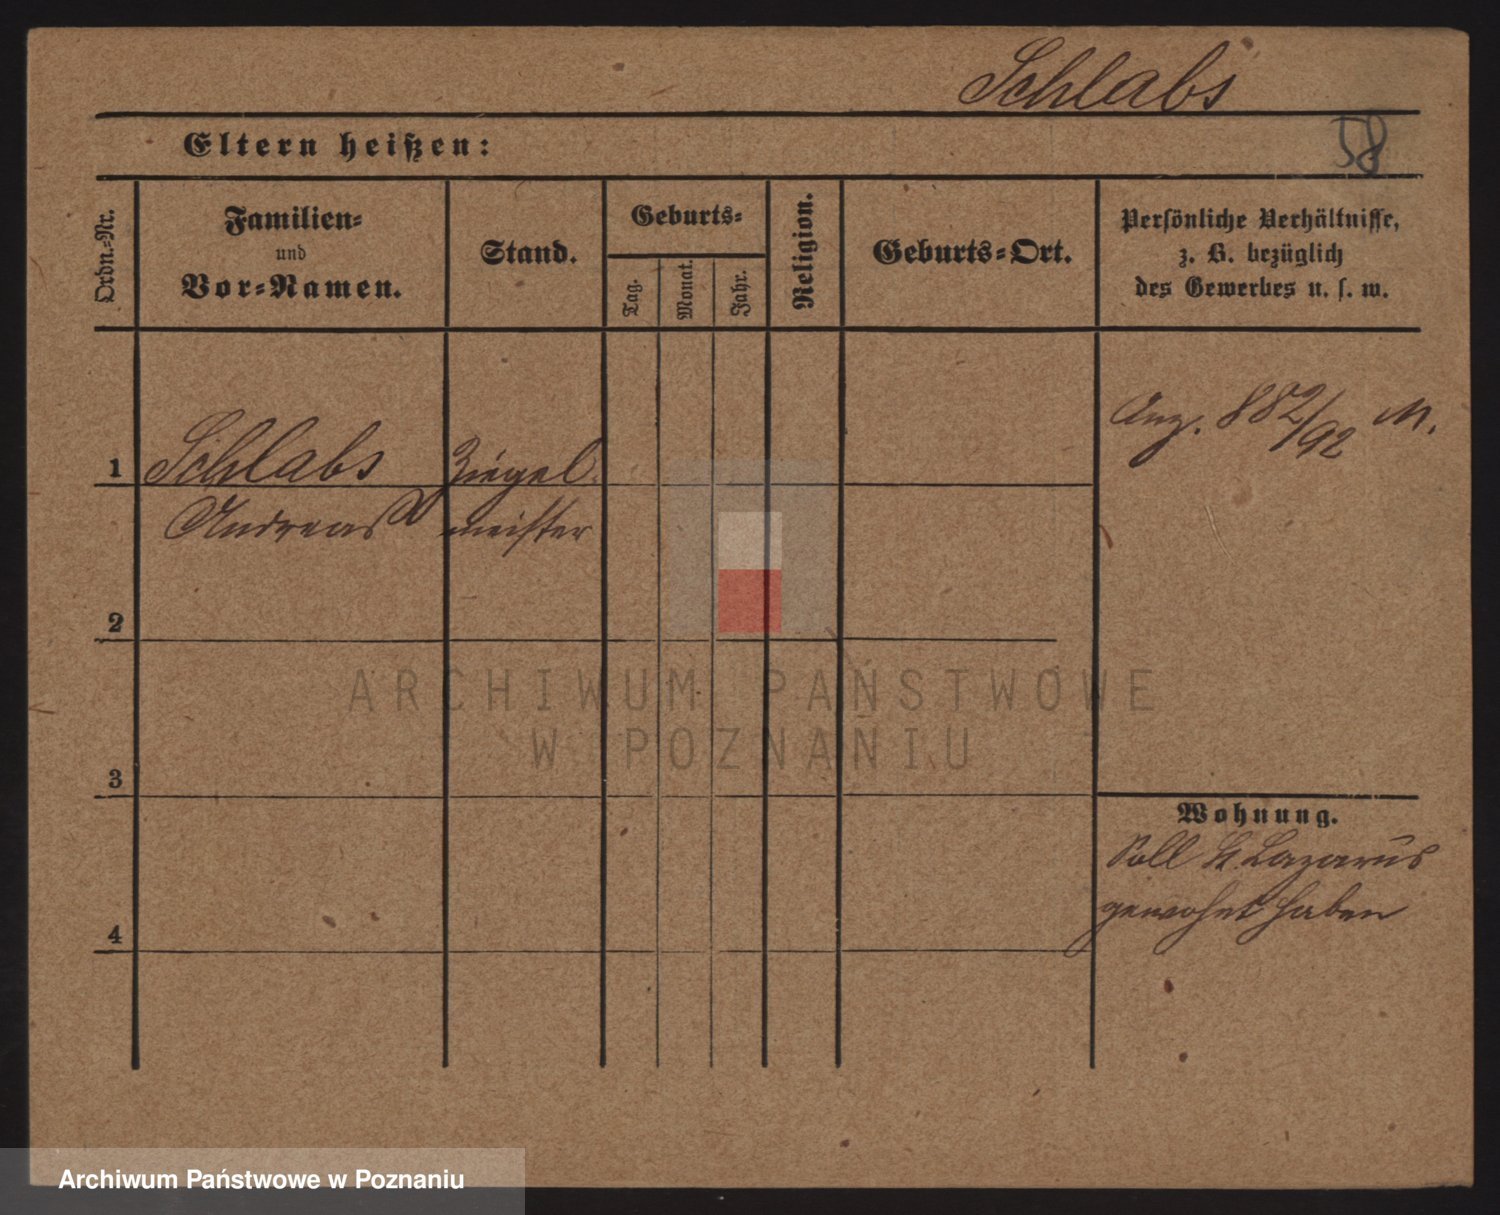 Schlabs
58
Eltern heißen:
Ordn.-Nr.
Familien-
und
Vor-Namen.
Stand.
Geburts-
Tag.
Monat.
Jahr.
Religion.
Geburts-Ort.
Persönliche Verhältnisse,
z. B. bezüglich
des Gewerbes u. s. w.
Anz. 882/92 M.
1
Schlabs
Ziegel-
Andreas
meister
2
ARCHIWUM PAŃSTWOWE
W POZNANIU
3
Wohnung.
Soll St. Lazarus
gewohnt haben
4
Archiwum Państwowe w Poznaniu